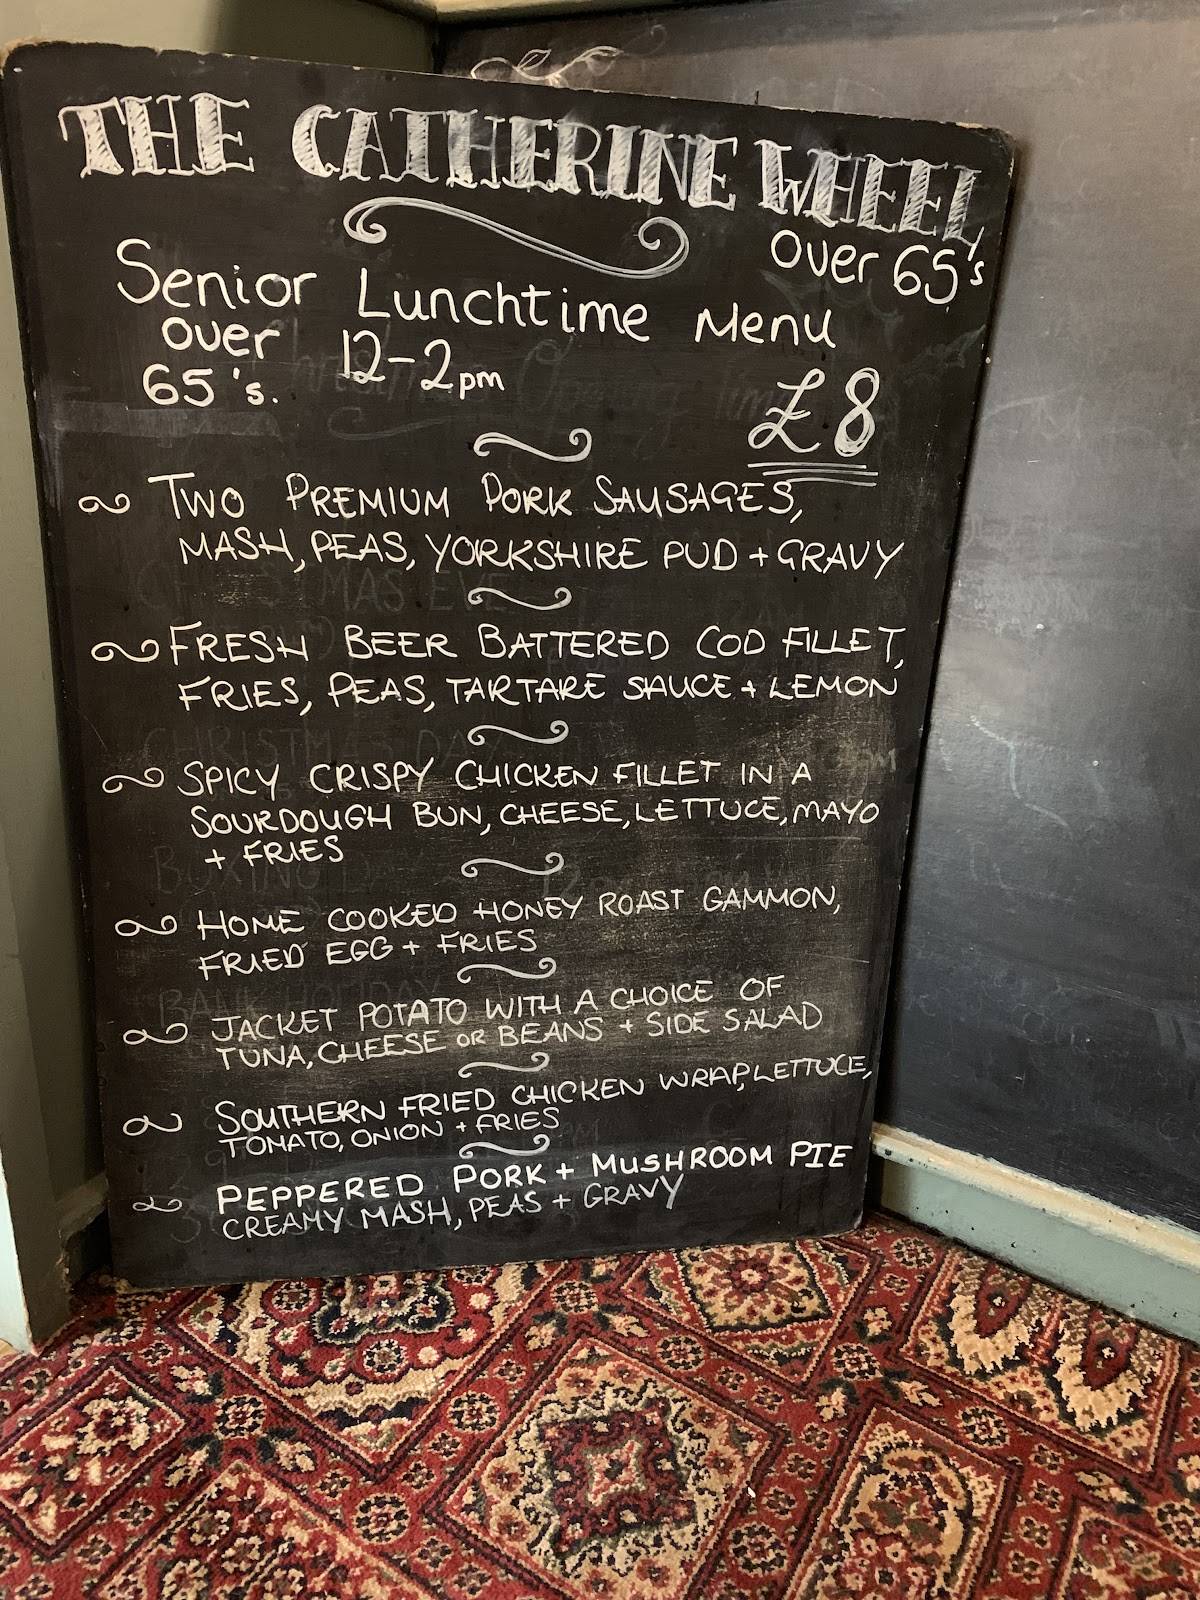 THE CATHERINE WHEEL
over 65's
Senior Lunchtime Menu
over 12-2pm
65's.
£8
TWO PREMIUM PORK SAUSAGES,
MASH, PEAS, YORKSHIRE PUD + GRAVY
FRESH BEER BATTERED COD FILLET,
FRIES, PEAS, TARTARE SAUCE + LEMON
SPICY CRISPY CHICKEN FILLET IN A
SOURDOUGH BUN, CHEESE, LETTUCE, MAYO
+ FRIES
HOME COOKED HONEY ROAST GAMMON,
FRIED EGG + FRIES
JACKET POTATO WITH A CHOICE OF
TUNA, CHEESE OR BEANS + SIDE SALAD
SOUTHERN FRIED CHICKEN WRAP, LETTUCE,
TOMATO, ONION + FRIES
PEPPERED PORK + MUSHROOM PIE
CREAMY MASH, PEAS + GRAVY